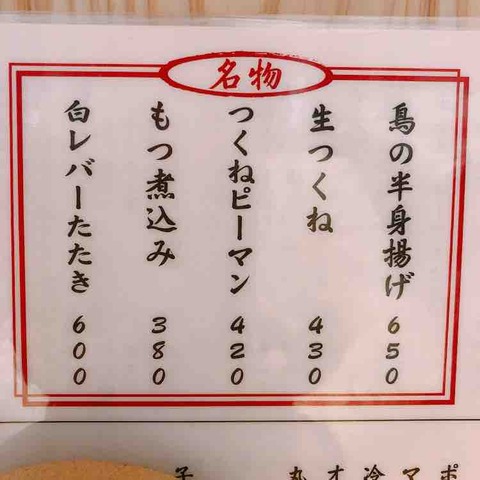 名物
鳥の半身揚げ 650
生つくね 430
つくねピーマン 420
もつ煮込み 380
白レバーたたき 600